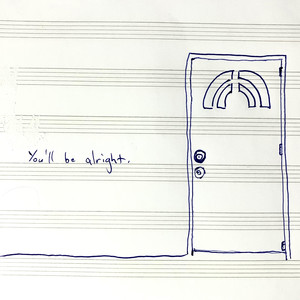 You'll be alright.